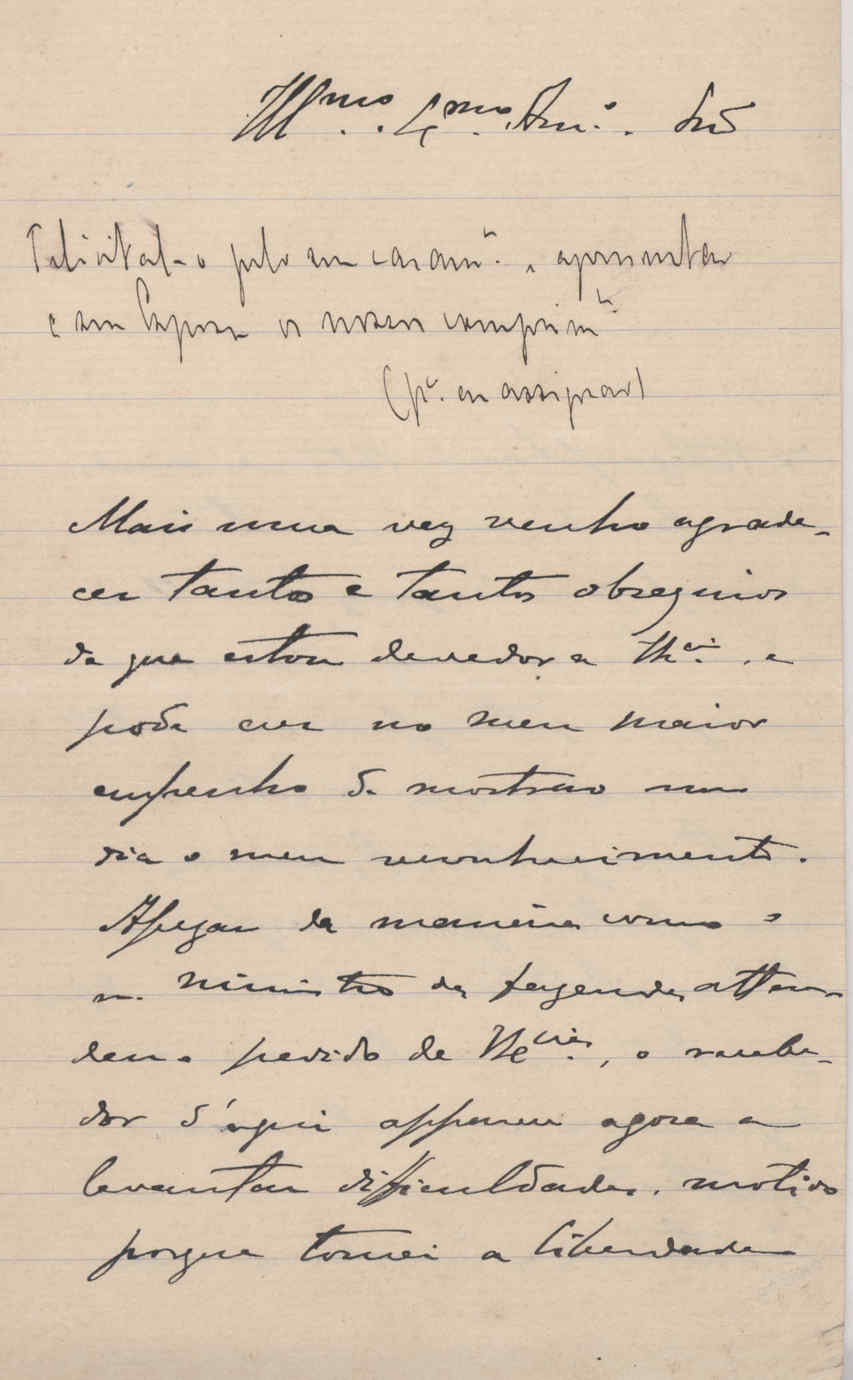 Ill.mo Ex.mo Am.º Snr
Felicital-o pelo seu casam.to e apresentar
e sua Esposa os nossos comprim.tos
(p.a eu assignar)
Mais uma vez venho agrade-
cer tantos e tantos obsequios
de que estou devedor a
pode crer no meu maior
empenho de mostrar um
dia o meu reconhecimento.
Apezar da maneira como o
sr. Ministro da fazenda atten-
deu o pedido de V. Ex.cia, o recebe-
dor d'aqui apparece agora a
levantar difficuldades, motivo
porque tomei a liberdade